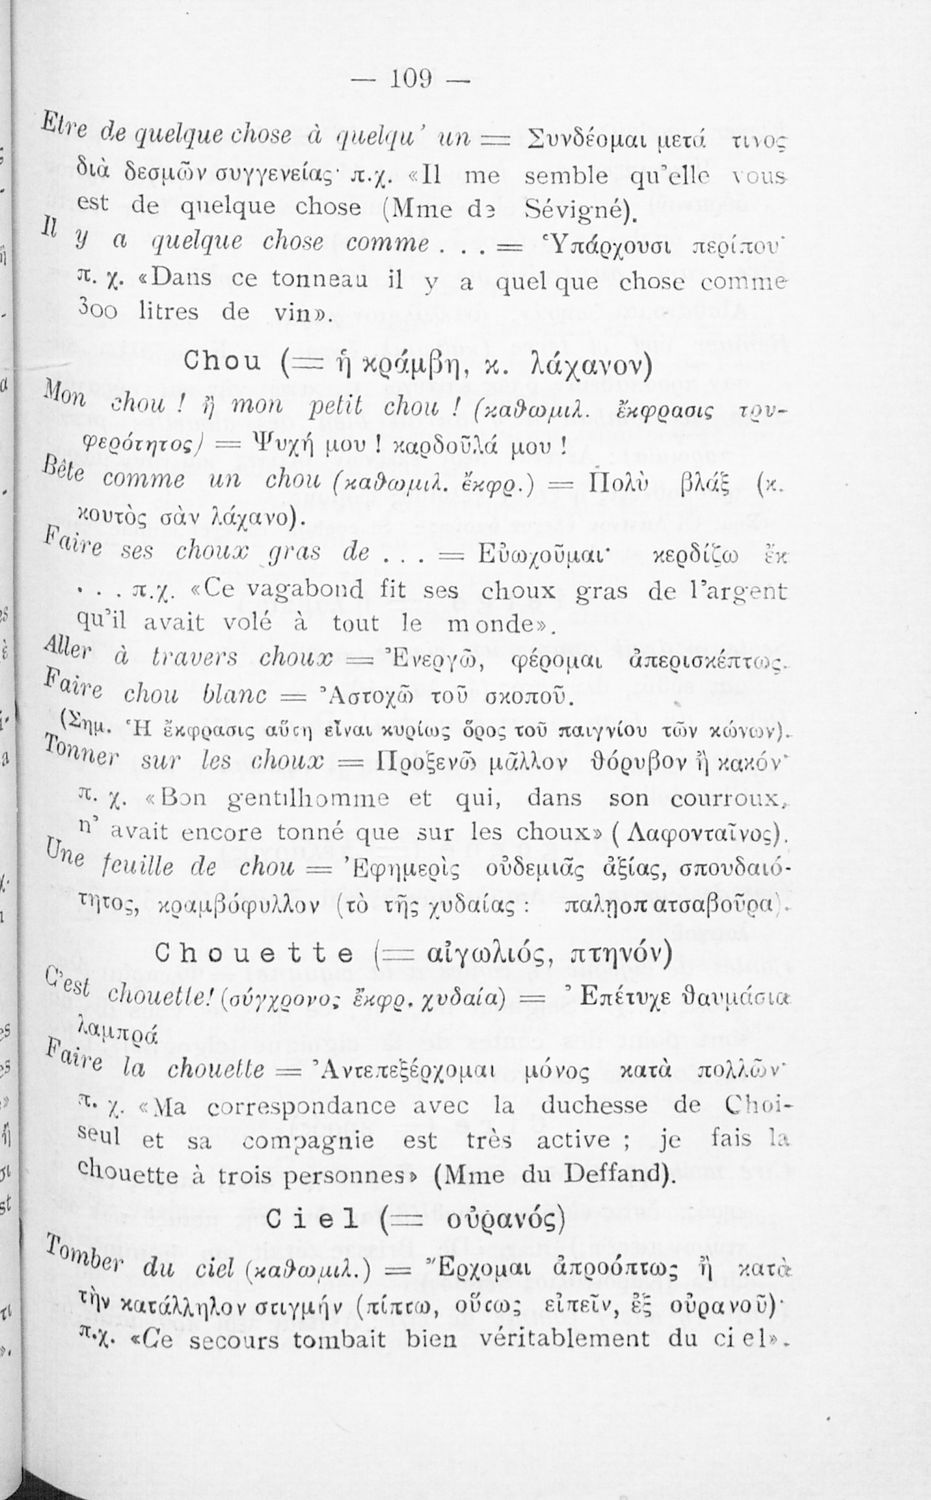 — 109 —
Etre de quelque chose à quelqu' un = Συνδέομαι μετά τινος
διὰ δεσμῶν συγγενείας· π.χ. «Il me semble qu'elle vous
est de quelque chose (Mme de Sévigné).
Il y a quelque chose comme . . . = Ὑπάρχουσι περίπου·
π. χ. «Dans ce tonneau il y a quel que chose comme
300 litres de vin».
Chou (= ἡ κράμβη, κ. λάχανον)
Mon chou ! ἢ mon petit chou ! (καθωμιλ. ἔκφρασις τρυ-
φερότητος) = Ψυχή μου ! καρδοῦλά μου !
Bête comme un chou (καθωμιλ. ἔκφρ.) = Πολὺ βλάξ (κ.
κουτὸς σὰν λάχανο).
Faire ses choux gras de . . . = Εὐωχοῦμαι· κερδίζω ἔκ
. . . π.χ. «Ce vagabond fit ses choux gras de l'argent
qu'il avait volé à tout le monde».
Aller à travers choux = Ἐνεργῶ, φέρομαι ἀπερισκέπτως.
Faire chou blanc = Ἀστοχῶ τοῦ σκοποῦ.
(Σημ. Ἡ ἔκφρασις αὕτη εἶναι κυρίως ὅρος τοῦ παιγνίου τῶν κώνων).
Tonner sur les choux = Προξενῶ μᾶλλον θόρυβον ἢ κακόν·
π. χ. «Bon gentilhomme et qui, dans son courroux,
n' avait encore tonné que sur les choux» (Λαφονταῖνος).
Une feuille de chou = Ἐφημερὶς οὐδεμιᾶς ἀξίας, σπουδαιό-
τητος, κραμβόφυλλον (τὸ τῆς χυδαίας : παλῃοπατσαβοῦρα).
Chouette (= αἰγωλιός, πτηνόν)
C'est chouette! (σύγχρονος ἔκφρ. χυδαία) = Ἐπέτυχε θαυμάσια
λαμπρά
Faire la chouette = Ἀντεπεξέρχομαι μόνος κατὰ πολλῶν·
π. χ. «Ma correspondance avec la duchesse de Choi-
seul et sa compagnie est très active ; je fais la
chouette à trois personnes» (Mme du Deffand).
Ciel (= οὐρανός)
Tomber du ciel (καθωμιλ.) = Ἔρχομαι ἀπροόπτως ἢ κατὰ
τὴν κατάλληλον στιγμήν (πίπτω, οὕτως εἰπεῖν, ἐξ οὐρανοῦ)·
π.χ. «Ce secours tombait bien véritablement du ciel».